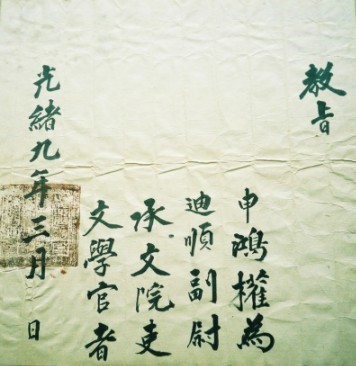 教旨
申鴻權為
迪順副尉
承文院吏
文學官者
光緒九年三月 日